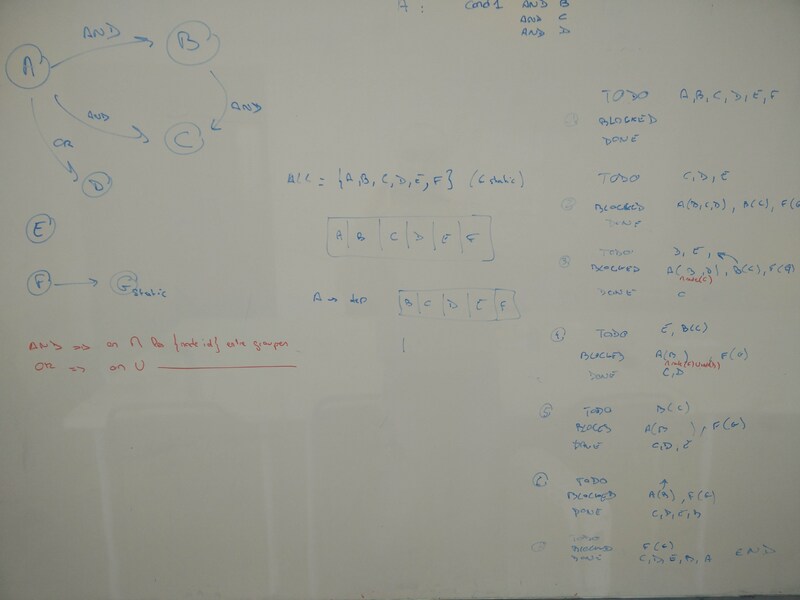 A : cond 1 AND B
AND C
AND D
A AND B
AND C AND
OR D
E
F G static
ALL = {A, B, C, D, E, F} (G static)
A B C D E F
A => dep B C D E F
AND => on ∩ les {node id} entre groupes
OR => on U
TODO A, B, C, D, E, F
BLOCKED
DONE
TODO C, D, E
② BLOCKED A(B,C,D), B(C), F(G
DONE
TODO D, E,
③ BLOCKED A(B,D), B(C), F(G)
node(c)
DONE C
④ TODO E, B(C)
BLOCKED A(B) F(G)
DONE C, D
⑤ TODO B(C)
BLOCKED A(B ), F(G)
DONE C, D, E
⑥ TODO
BLOCKED A(B), F(G)
DONE C, D, E, B
TODO
BLOCKED F(G)
DONE C, D, E, B, A END